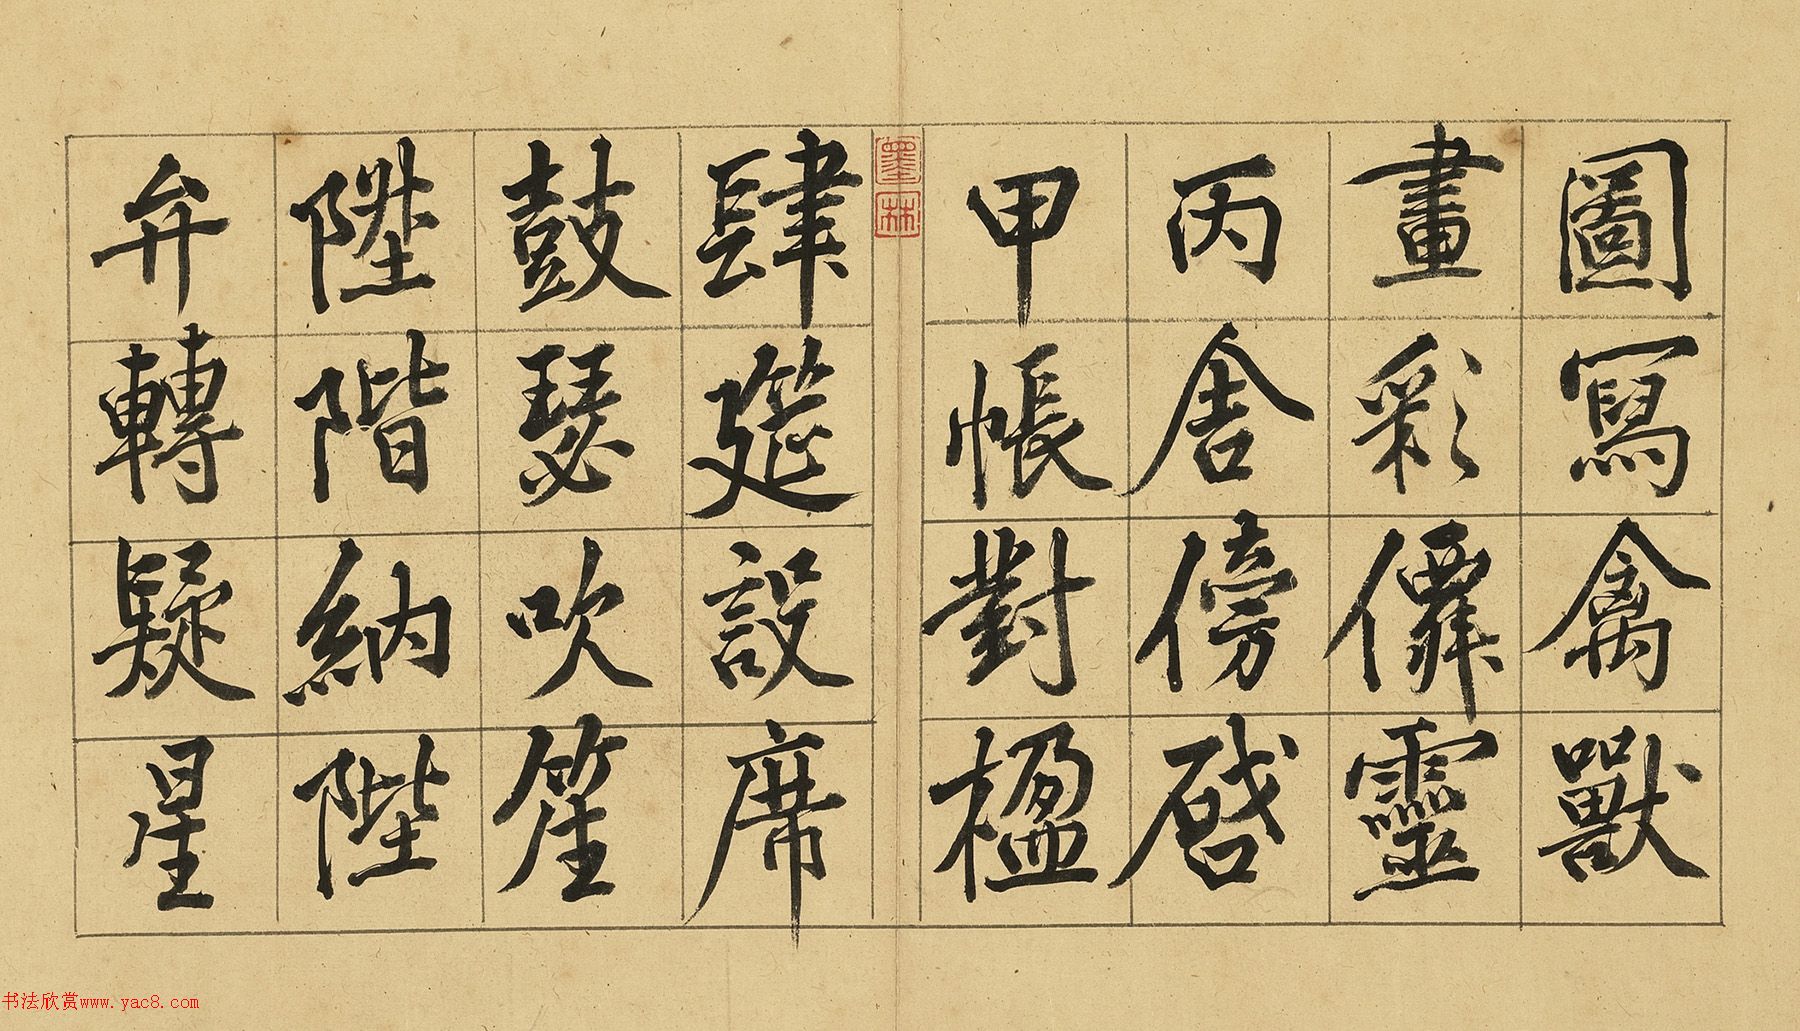 圖寫禽獸
畫彩僊靈
丙舍傍啓
甲帳對楹
肆筵設席
鼓瑟吹笙
陞階納陛
弁轉疑星
墨林
书法欣赏www.yac8.com